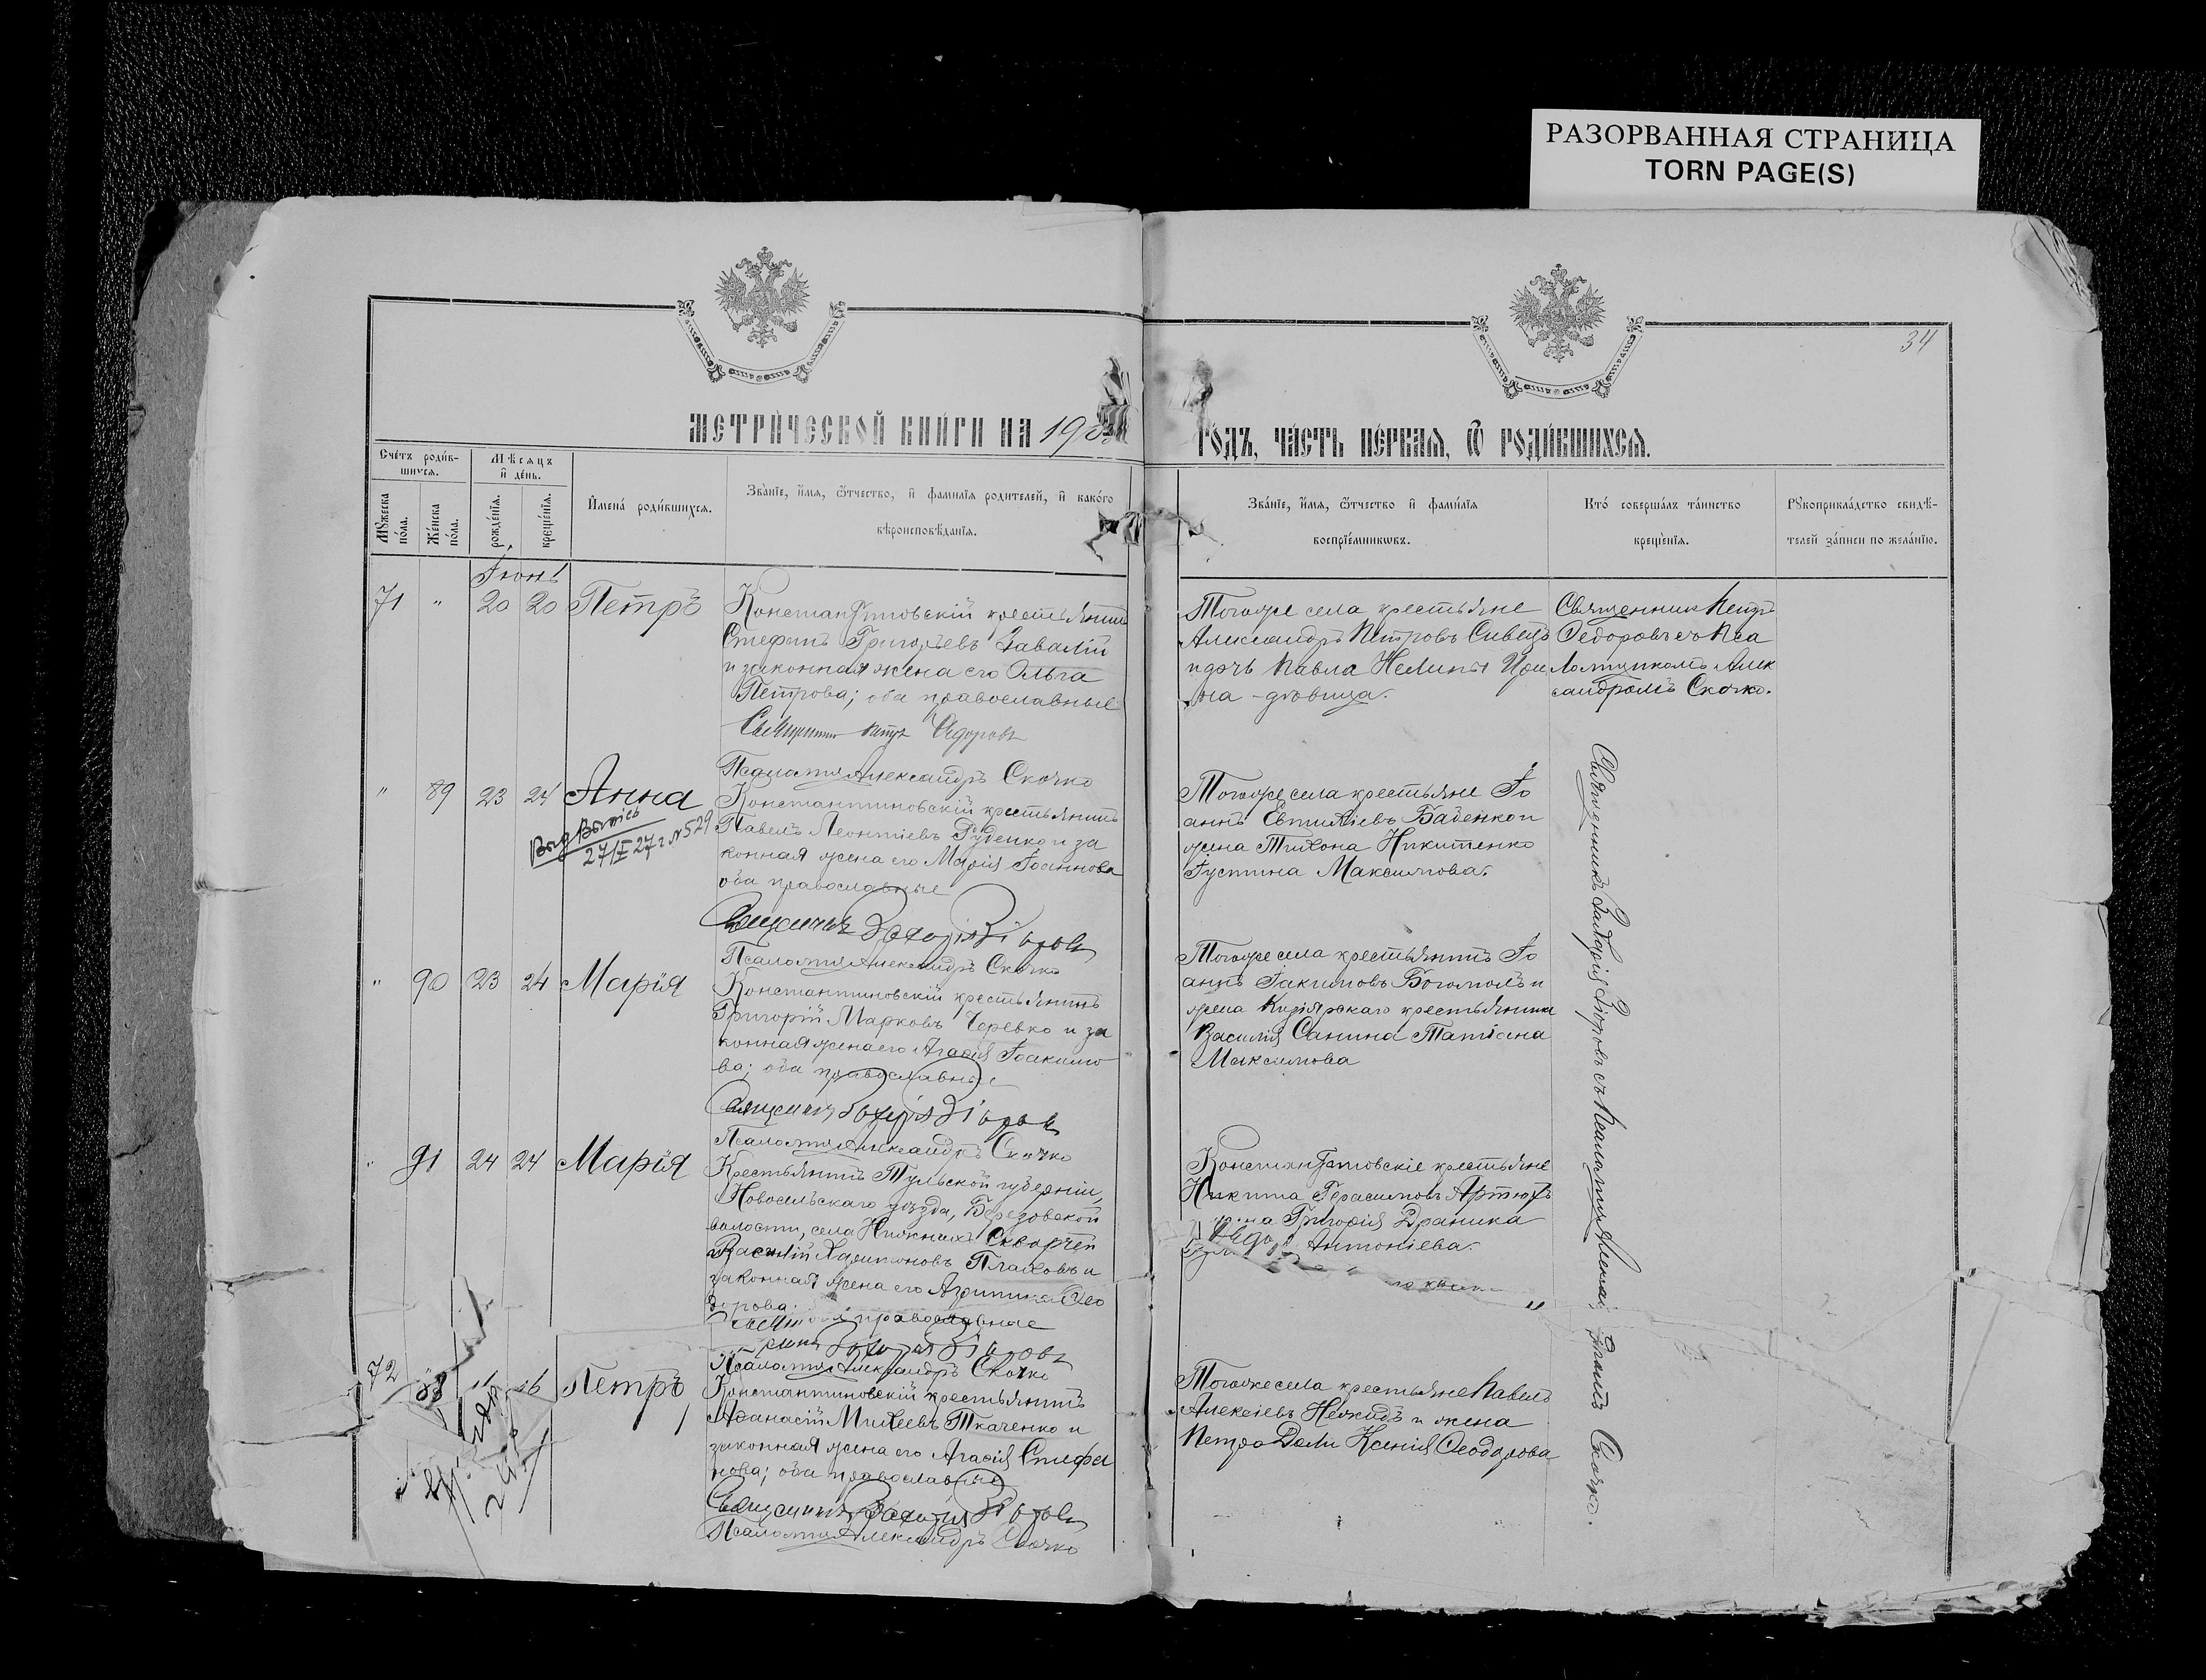 РАЗОРВАННАЯ СТРАНИЦА
TORN PAGE(S)
34
МЕТРИЧЕСКОЙ КНИГИ НА 190
ГОДЪ, ЧАСТЬ ПЕРВАЯ, Ѿ РОДИВШИХСЯ.
Счетъ родив-
шихся.
Мужеска пола.
Женска пола.
Мѣсяцъ
и день.
рожденія.
крещенія.
Имена родившихся.
Званіе, имя, отчество, и фамилія родителей, и какого
вѣроисповѣданія.
Званіе, имя, отчество и фамилія
воспріемниковъ.
Кто совершалъ таинство
крещенія.
Рукоприкладство свидѣ-
телей записи по желанію.
Іюнь
71 " 20 20 Петръ
Константиновскій крестьянинъ
Стефанъ Григорьевъ Завалій
и законная жена его Ольга
Петрова; оба православные
Священникъ Петръ Ѳедоровъ
Псаломщ Александръ Скочко
Того же села крестьяне
Александръ Петровъ Сивецъ
и дочь Павла Нелипы Ири
на - дѣвица.
Священник Петръ
Ѳедоровъ съ Пса
ломщикомъ Алек
сандромъ Скочко.
" 89 23 24 Анна
27/I 27 г № 529
Константиновскій крестьянинъ
Павелъ Леонтіевъ Руденко и за
конная жена его Марія Іоаннова
оба православные
Священникъ Захарія Діоровъ
Псаломщ Александръ Скочко
Того же села крестьяне Іо
аннъ Евтихіевъ Баденко и
жена Тихона Никитенко
Іустина Максимова.
Священникъ Захарія Діоровъ съ Псаломщ Александръ Скочко.
" 90 23 24 Марія
Константиновскій крестьянинъ
Григорій Марковъ Черевко и за
конная жена его Агафія Іоакимо
ва; оба православные
Священникъ Захарія Діоровъ
Псаломщ Александръ Скочко
Того же села крестьянинъ Іо
аннъ Іакимовъ Богомолъ и
жена крестьянина
Василія Санина Татіана
Максимова
" 91 24 24 Марія
Крестьянинъ Тульской губерніи,
Новосильскаго уѣзда, Березовской
волости, села Нижнихъ Скворчей
Василій Харитоновъ Плаховъ и
законная жена его Ѳео
дорова. оба православные
Захарія Діоровъ
Псаломщ Александръ Скочко
Константиновскіе крестьяне
Никита Герасимовъ Артюхъ
жена Григорія Драника
Антоніева.
72 Петръ
Константиновскій крестьянинъ
Аѳанасій Михеевъ Ткаченко и
законная жена его Агафія Стефа
нова; оба православные
Священникъ Захарія Діоровъ
Псаломщ Александръ Скочко
Того же села крестьяне Павелъ
Алексіевъ Нежидъ и жена
Петра Дели Ксенія Ѳеодорова